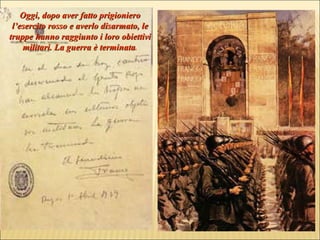 Oggi, dopo aver fatto prigioniero
l'esercito rosso e averlo disarmato, le
truppe hanno raggiunto i loro obiettivi
militari. La guerra è terminata
En el dia de hoy, cautivo
y desarmado el Ejercito rojo
han alcanzado las tropas na-
cionales sus ultimos objeti-
vos militares. La guerra
ha terminado
El Generalisimo
Franco
Burgos 1º Abril 1939
FRANCO
FRANCO
FRANCO